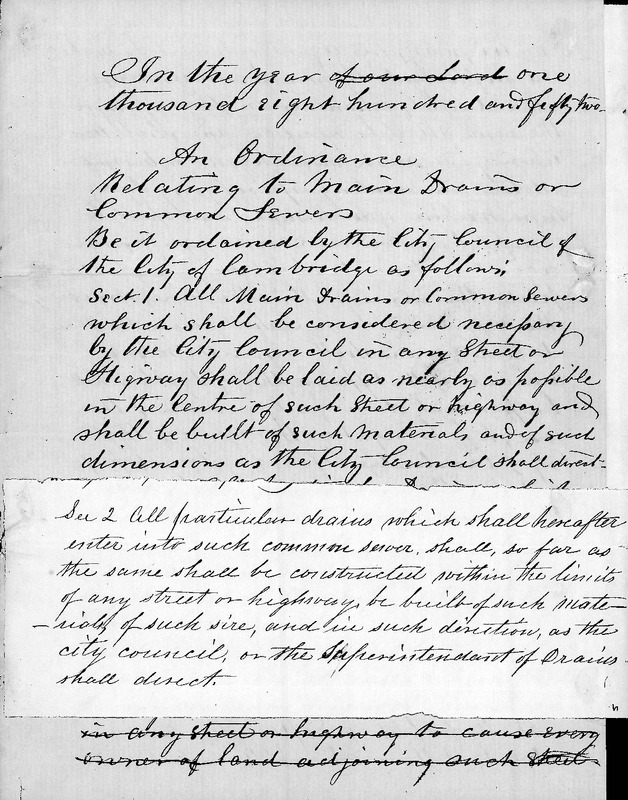 In the year of our Lord one
thousand eight hundred and fifty two.
An Ordinance
Relating to Main Drains or
Common Sewers
Be it ordained by the City Council of
the City of Cambridge as follows;
Sect. 1. All Main Drains or Common Sewers
which shall be considered necessary
by the City Council in any Street or
Higway shall be laid as nearly as possible
in the Centre of such Street or highway and
shall be built of such materials and of such
dimensions as the City Council shall direct—
Sec 2 All particular drains which shall hereafter
enter into such common sewer, shall, so far as
the same shall be constructed within the limits
of any street or highway, be built of such mate-
-rials, of such size, and in such direction, as the
city council, or the Superintendant of Drains
shall direct.
in any Street or highway to cause every
owner of land adjoining such Street